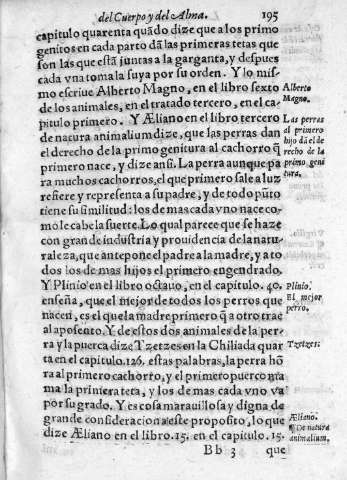 del Cuerpo y del Alma. 195
capitulo quarenta quãdo dize que a los primo
genitos en cada parto dã las primeras tetas que
son las que está juntas a la garganta, y despues
cada vna toma la suya por su orden. Y lo mis-
mo escriue Alberto Magno, en el libro sexto
de los animales, en el tratado tercero, en el ca-
pitulo primero. Y Æliano en el libro tercero
de natura animalium dize, que las perras dan
el derecho de la primo genitura al cachorro q̃
primero nace, y dize ansi. La perra aunque pa
ra muchos cachorros, el que primero sale a luz
refiere y representa a su padre, y de todo pũto
tiene su similitud: los de mas cada vno nace co-
mo le cabe la suerte. Lo qual parece que se haze
con gran de industria y prouidencia de la natu-
raleza, que antepone el padre a la madre, y a to
dos los de mas hijos el primero engendrado.
Y Plinio en el libro octauo, en el capitulo. 40.
enseña, que el mejor de todos los perros que
nacen, es el que la madre primero q̃ a otro trae
al aposento. Y de estos dos animales de la per-
ra y la puerca dize Tzetzes en la Chiliada quar
ta en el capitulo. 126. estas palabras, la perra hõ
ra al primero cachorro, y el primero puerco ma
ma la primera teta, y los de mas cada vno va
por su grado. Y es cosa marauillosa y digna de
grande consideracion a este proposito, lo que
dize Æliano en el libro. 15. en el capitulo. 15.
Bb 3 que
Alberto
Magno.
Las perras
al primero
hijo dã el de
recho de la
primo geni
tura.
Plinio.
El mejor
perro.
Tzetzes:
Æliano.
De natura
animalium.